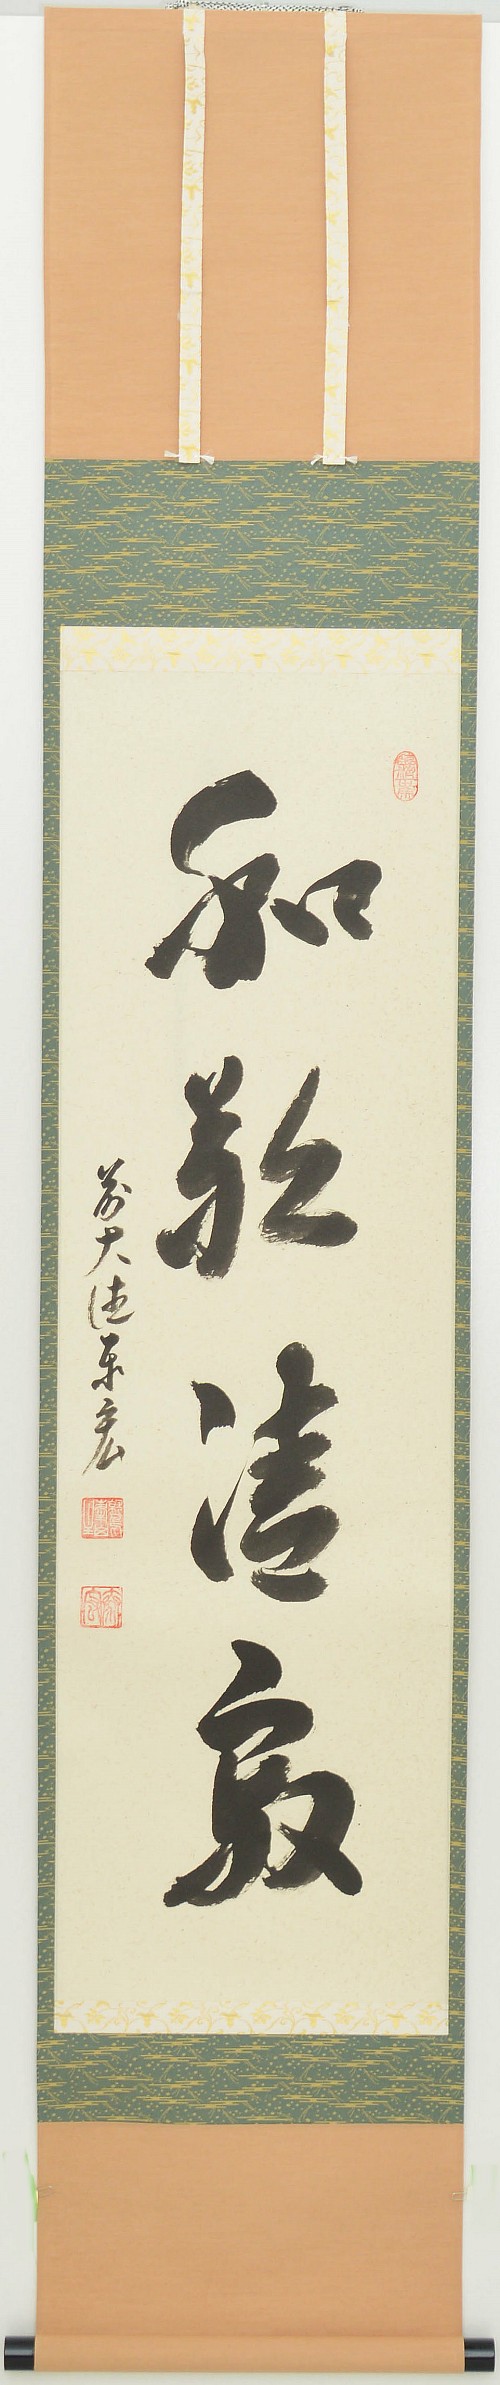 和敬清寂
前大徳泰宏